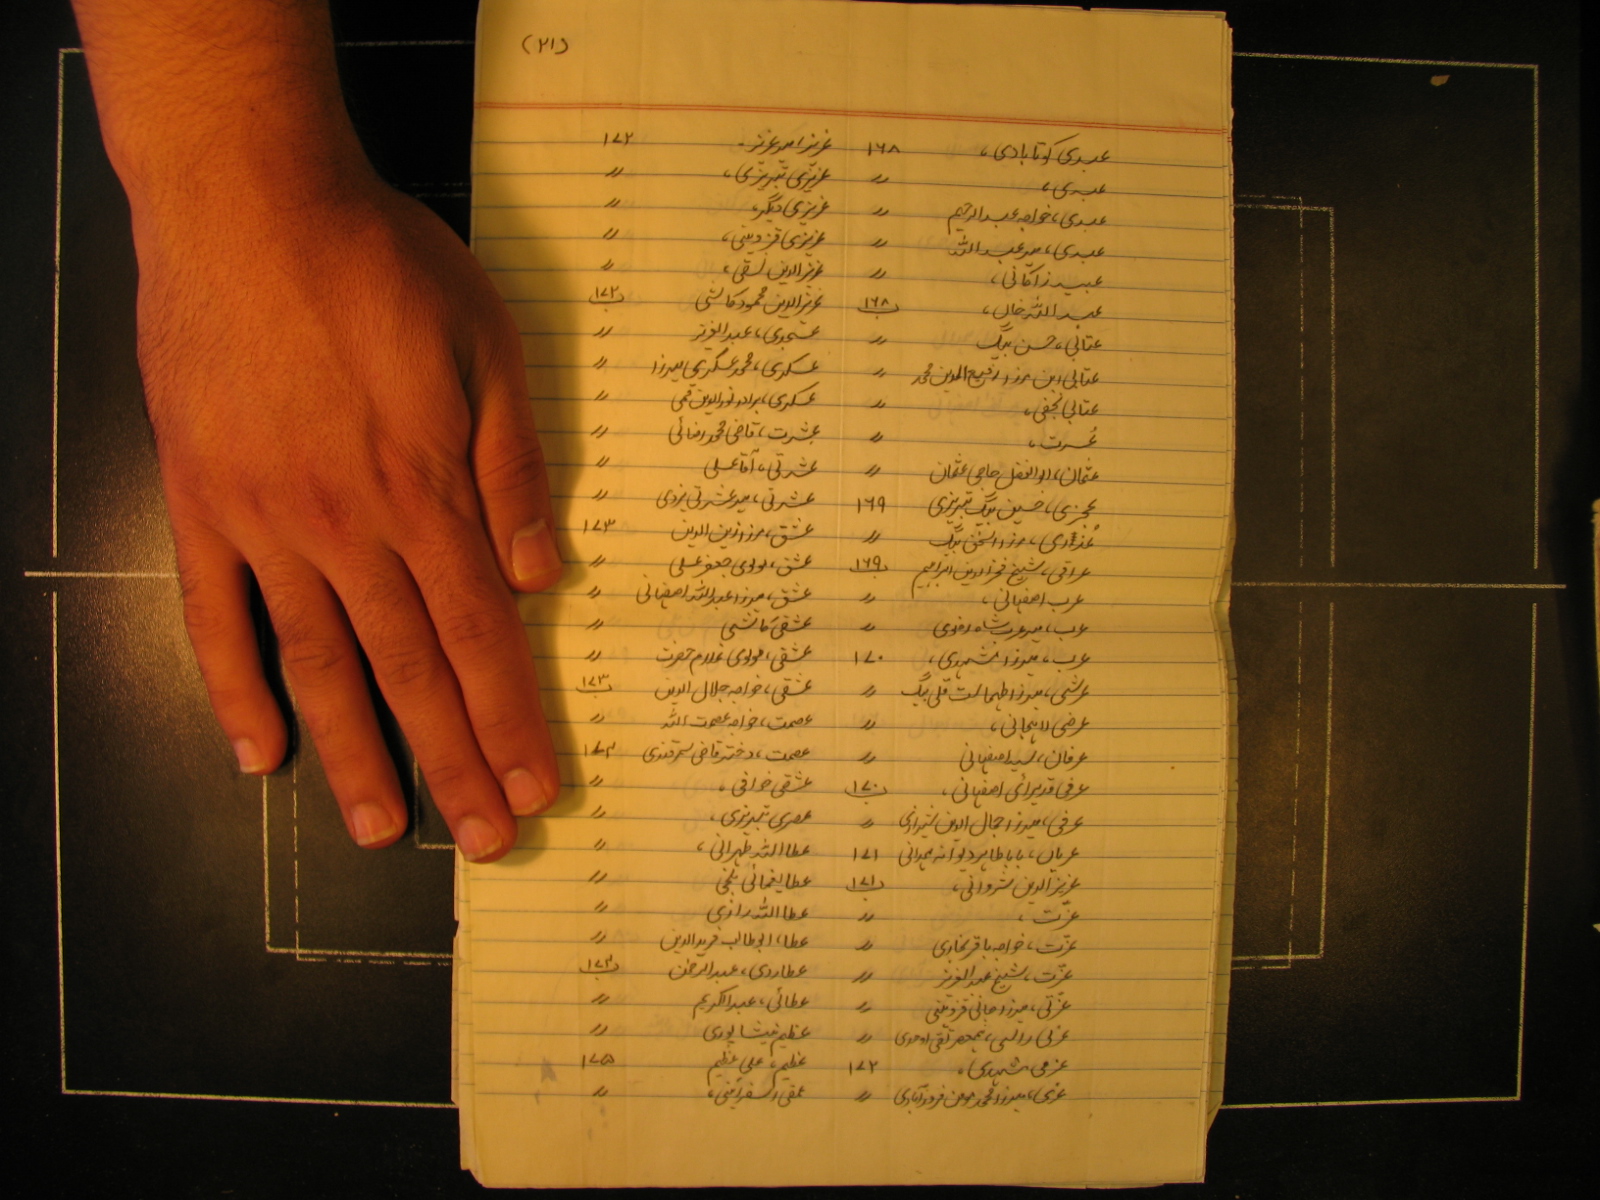 (٢١)
عبدی گونابادی، ١٦٨
عبدی، 〃
عبدی، خواجه عبدالرحیم 〃
عبدی، میر عبدالله 〃
عبید زاکانی، 〃
عبدالله خان، ١٦٨ ب
عتابی، حسن بیگ 〃
عتابی ابن میرزا رفیع الدین محمد 〃
عتابی نجفی، 〃
عُسرت، 〃
عثمان، ابوالفضل حاجی عثمان 〃
عجزی، حسین بیگ تبریزی ١٦٩
عُذری، میرزا اسحٰق بیگ 〃
عراقی، شیخ فخرالدین ابراهیم ١٦٩ ب
عرب اصفهانی، 〃
عرب، میر عربشاه رضوی 〃
عرب، میرزا مشهدی، ١٧٠
عرشی، میرزا طهماسب قلی بیگ 〃
عرضی لاهیجانی، 〃
عرفان، سید اصفهانی 〃
عرفی قدیرائی اصفهانی، ١٧٠ ب
عرفی، میرزا جمال الدین شیرازی 〃
عریان، بابا طاهر دیوانه همدانی ١٧١
عزیزالدین شروانی، ١٧١ ب
عزّت، 〃
عزّت، خواجه باقر بخاری 〃
عزّت، شیخ عبدالعزیز 〃
عزّتی، میرزا جانی قزوینی 〃
تقی اوحدی 〃
عزمی مشهدی، ١٧٢
عزی، میرزا محمد مومن فیروزآبادی 〃
عزیز، میر عزیز ١٧٢
عزیزی تبریزی، 〃
عزیزی دیگر، 〃
عزیزی قزوینی، 〃
عزیزالدین نسفی، 〃
عزیزالدین محمود کاشی ١٧٢ ب
عسجدی، عبدالعزیز 〃
عسکری، محمد عسکری میرزا 〃
عسکری، برادر نورالدین قمی 〃
عشرت، قاضی محمد رضائی 〃
عشرتی، آقا علی 〃
عشرتی، میر عشرتی یزدی 〃
عشق، میرزا زین الدین ١٧٣
عشق، مولوی جعفر علی 〃
عشق، میرزا عبدالله اصفهانی 〃
عشقی کاشی 〃
عشقی، مولوی غلام حضرت 〃
عشقی، خواجه جلال الدین ١٧٣ ب
عصمت، خواجه عصمت الله 〃
عصمت، دختر قاضی سمرقندی ١٧٤
عشقی خوافی، 〃
عصری تبریزی، 〃
عطاالله طهرانی، 〃
عطا یغمائی بلخی 〃
عطاالله رازی 〃
عطا، ابوطالب فریدالدین 〃
عطاردی، عبدالرحمٰن ١٧٤ ب
عطائی، عبدالکریم 〃
عظیم نیشاپوری 〃
عظیم، علی عظیم ١٧٥
اسفرائینی، 〃